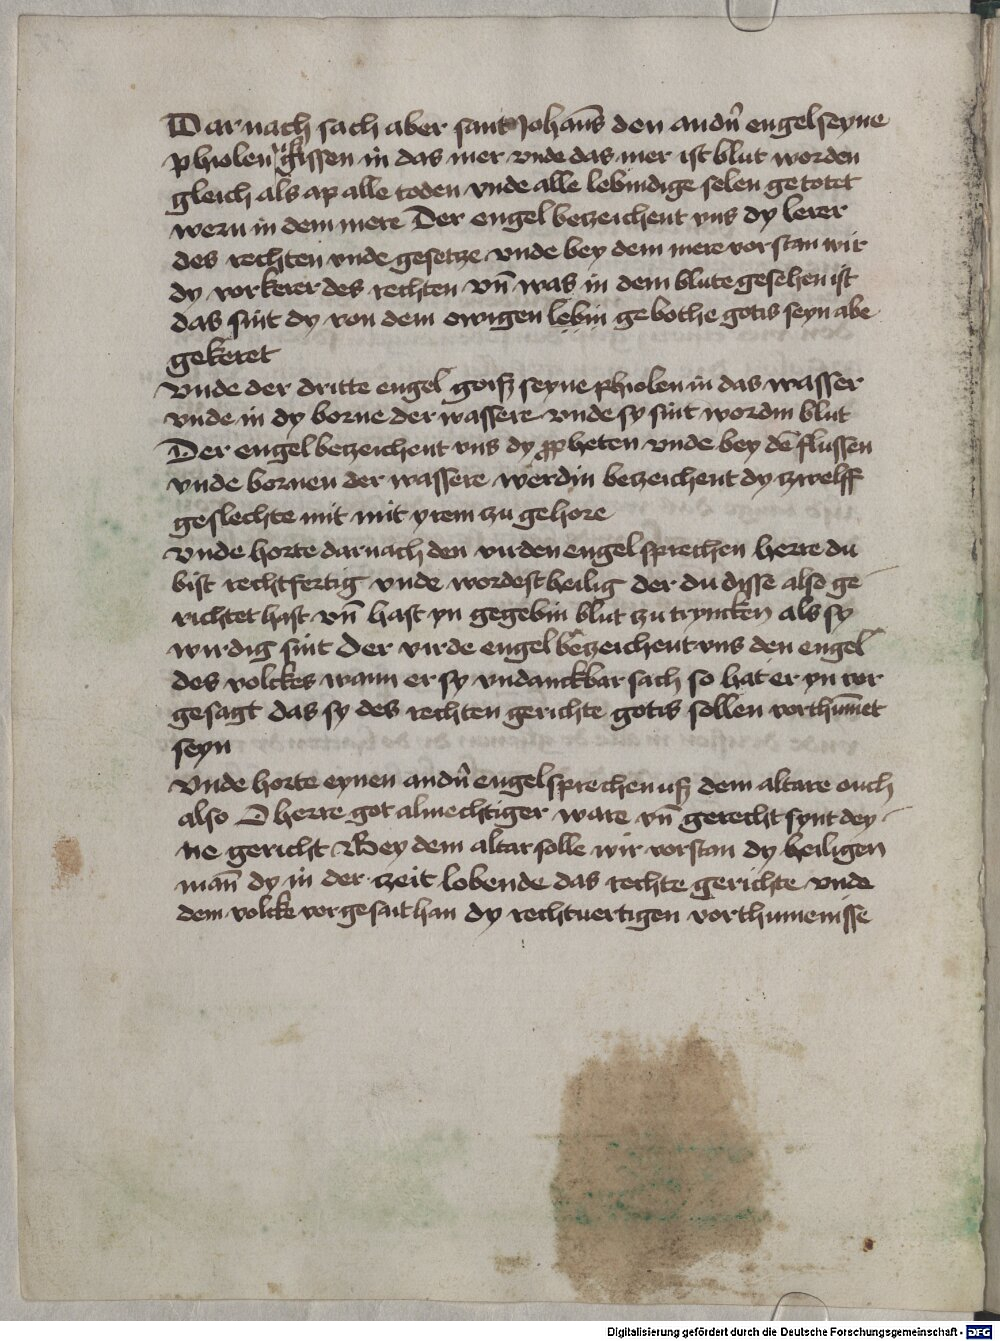 Dar nach sach aber sant Johañs den andn̄ engel seyne
phiolen gissen in das mer vnde das mer ist blut worden
gleich als ap alle toden vnde alle lebindige selen getotet
wern in dem mere Der engel betzeichent vns dy lerer
des rechten vnde gesetze vnde bey dem mere vorstan wir
dy vorkerer des rechten vn̄ was in dem blute gesehen ist
das sint dy von dem ewigen lebin gebothe gotis seyn abe
gekeret
Vnde der dritte engel goisz seyne phiolen in das wasser
vnde in dy borne der wassere vnde sy sint wordin blut
Der engel betzeichent vns dy ꝓpheten vnde bey dē flussen
vnde bornen der wassere werdin betzeichent dy zwelff
geslechte mit mit yrem zu gehore
Vnde horte dar nach den virden engel sprechen herre du
bist rechtfertig vnde wordest heilig der du disse also ge-
richtet hast vn̄ hast yn gegebin blut zu tryncken als sy
wirdig sint Der virde engel betzeichent vns den engel
des volckes wann er sy vndanckbar sach so hat er yn vor
gesagt das sy des rechten gerichte gotis sollen vorthūmet
seyn
Vnde horte eynen andn̄ engel sprechen usz dem altare ouch
also O herre got almechtiger ware vn̄ gerecht synt dey-
ne gericht Bey dem altar solle wir vorstan dy heiligen
man̄ dy in der zeit lobende das rechte gerichte vnde
dem volcke vorgesait han dy rechtuertigen vorthumenisse
Digitalisierung gefördert durch die Deutsche Forschungsgemeinschaft - DFG